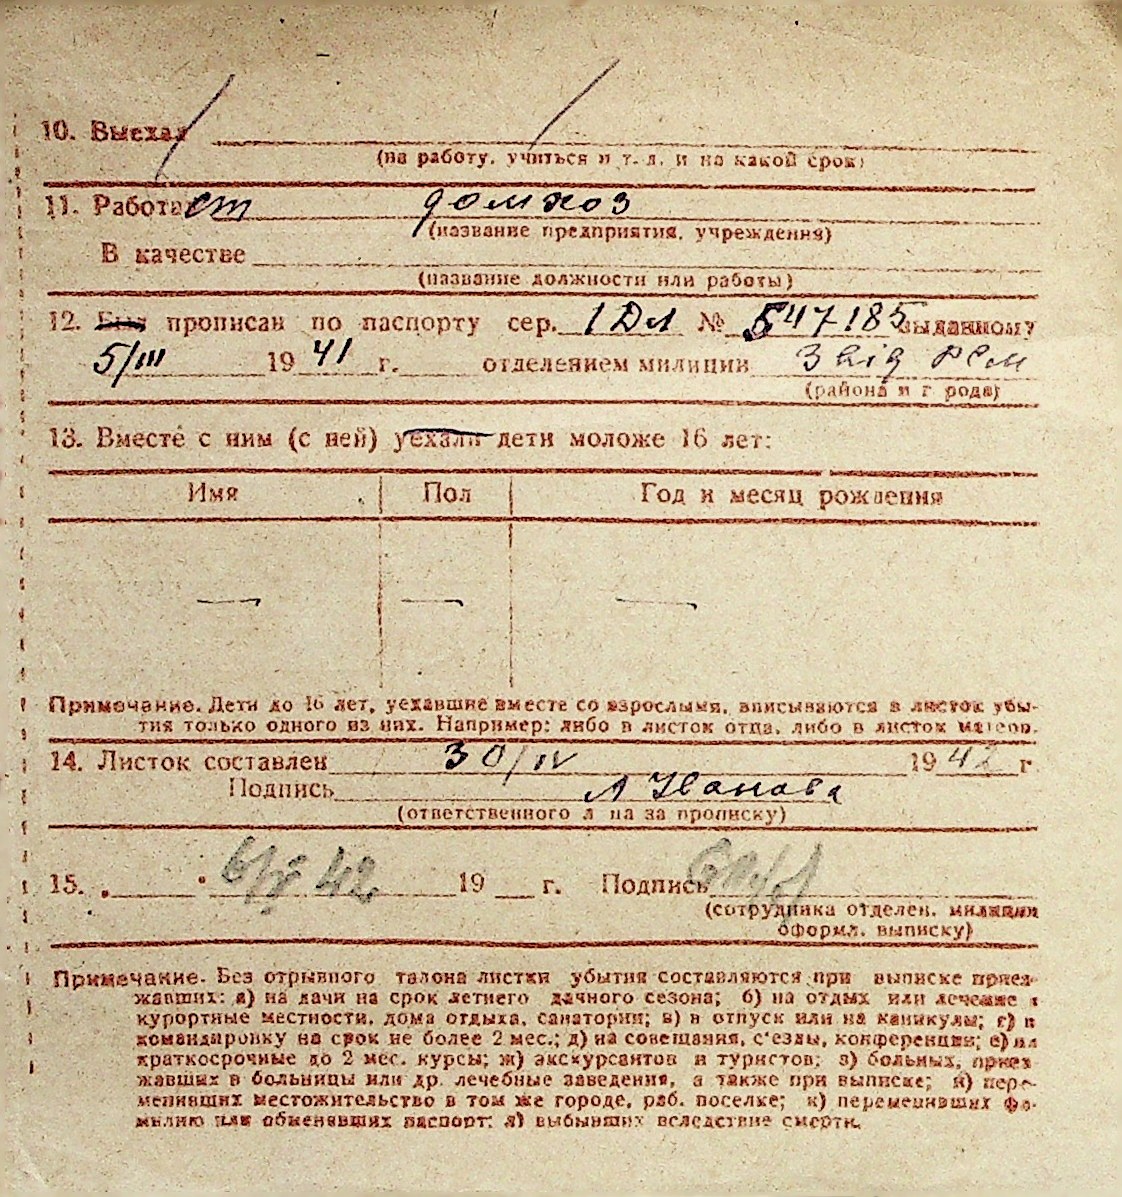 10. Выехал
(на работу, учиться и т. д. и на какой срок)
11. Работает домхоз
(название предприятия, учреждения)
В качестве
(название должности или работы)
12. Был прописан по паспорту сер. 1 Дл № 547185 выданному
5/III 1941 г. отделением милиции 3
(района и города)
13. Вместе с ним (с ней) уехали дети моложе 16 лет:
Имя Пол Год и месяц рождения
— — —
Примечание. Дети до 16 лет, уехавшие вместе со взрослыми, вписываются в листок убы-
тия только одного из них. Например: либо в листок отца, либо в листок матери.
14. Листок составлен 30/IV 1942 г
Подпись А Иванова
(ответственного л па за прописку)
15. „ “ 6/V 42 19 г. Подпись
(сотрудника отделен. милиции
оформл. выписку)
Примечание. Без отрывного талона листки убытия составляются при выписке приез-
жавших: а) на дачи на срок летнего дачного сезона; б) на отдых или лечение в
курортные местности, дома отдыха, санатории; в) в отпуск или на каникулы; г) в
командировку на срок не более 2 мес.; д) на совещания, с'езды, конференции; е) на
краткосрочные до 2 мес. курсы; ж) экскурсантов и туристов; з) больных, приез
жавших в больницы или др. лечебные заведения, а также при выписке; и) пере-
менивших местожительство в том же городе, раб. поселке; к) переменивших фа-
милию или обменявших паспорт; л) выбывших вследствие смерти.